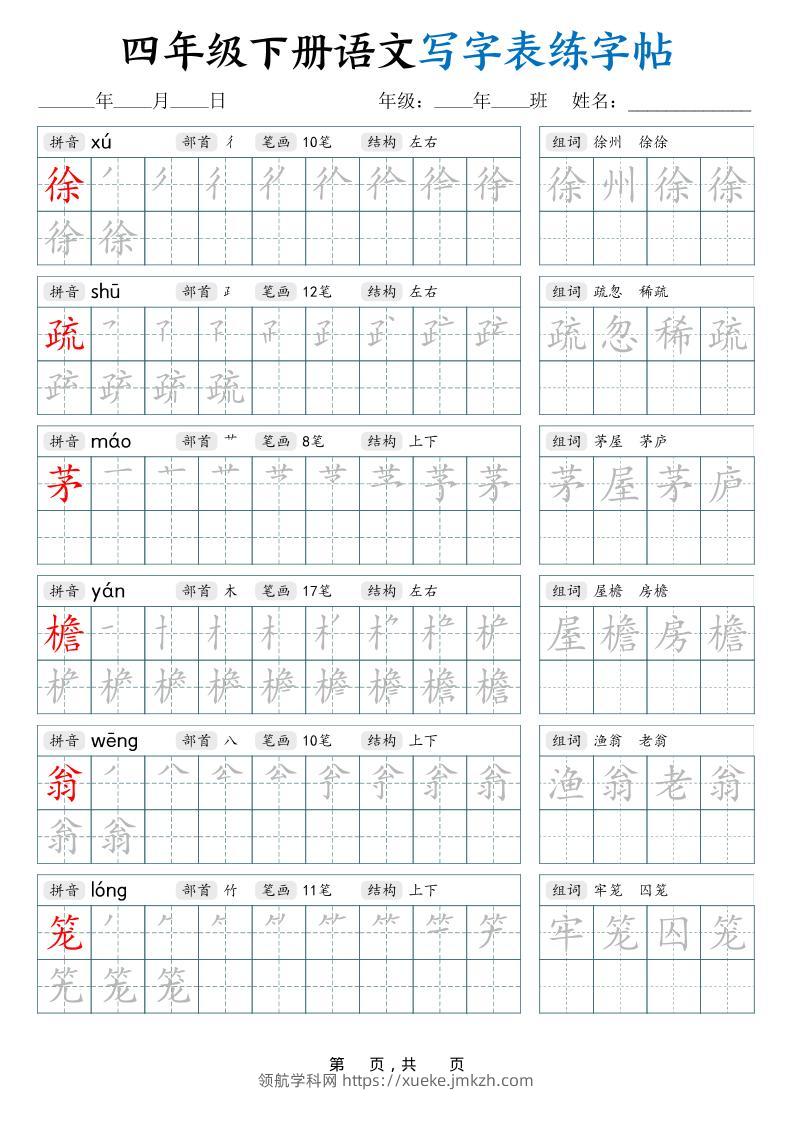 四年级下册语文写字表练字帖
______年____月____日 年级：____年____班 姓名：____________
拼音 xú 部首 彳 笔画 10笔 结构 左右 组词 徐州 徐徐
徐 徐 州 徐 徐
徐
拼音 shū 部首 𤴔 笔画 12笔 结构 左右 组词 疏忽 稀疏
疏 疏 忽 稀 疏
疏
拼音 máo 部首 艹 笔画 8笔 结构 上下 组词 茅屋 茅庐
茅 茅 茅 屋 茅 庐
拼音 yán 部首 木 笔画 17笔 结构 左右 组词 屋檐 房檐
檐 屋 檐 房 檐
檐
拼音 wēng 部首 八 笔画 10笔 结构 上下 组词 渔翁 老翁
翁 渔 翁 老 翁
翁
拼音 lóng 部首 竹 笔画 11笔 结构 上下 组词 牢笼 囚笼
笼 牢 笼 囚 笼
笼
第 页，共 页
领航学科网 https://xueke.jmkzh.com